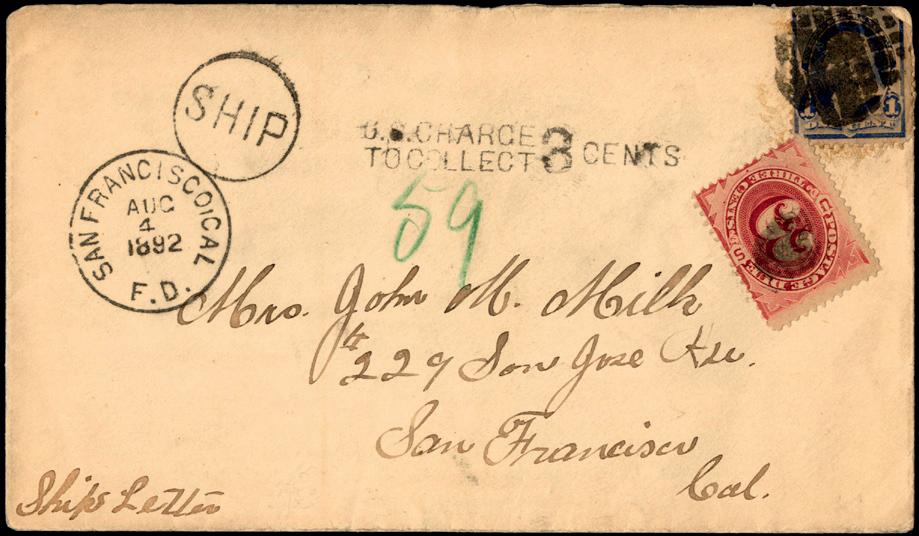 SHIP
SAN FRANCISCO CAL
AUG
4
1892
F.D.
U.S. CHARGE
TO COLLECT 3 CENTS
59
1 1
U.S. POSTAGE DUE
3
Mrs. John M. Milh
#229 San Jose Ave.
San Francisco
Cal.
Ship Letter